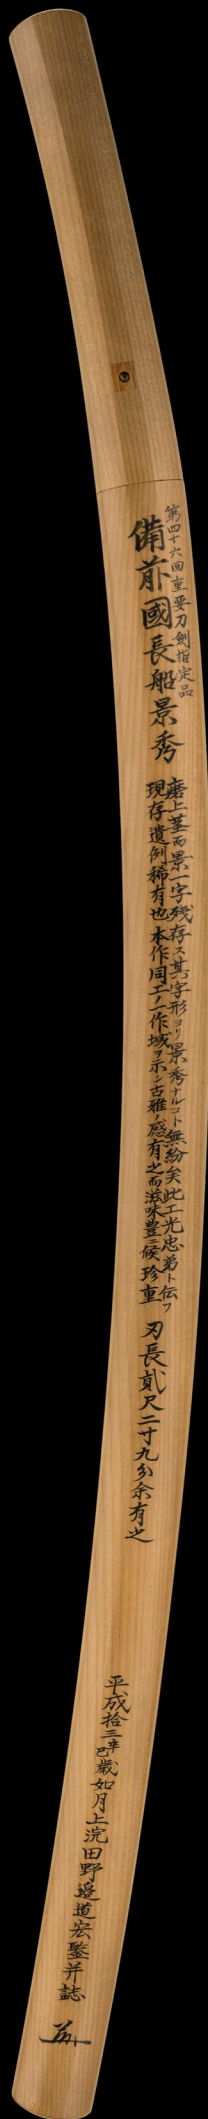 第四十六回重要刀剣指定品
備前國長船景秀
磨上茎而景一字残存ス其字形ヨリ景秀ナルコト無紛矣此工光忠弟ト伝フ
現存遺例稀有也本作同工ノ一作域ヲ示シ古雅ノ感有之而滋味豊ニ候珍重
刃長貳尺二寸九分余有之
平成拾三辛巳歳如月上浣田野邉道宏鑒并誌